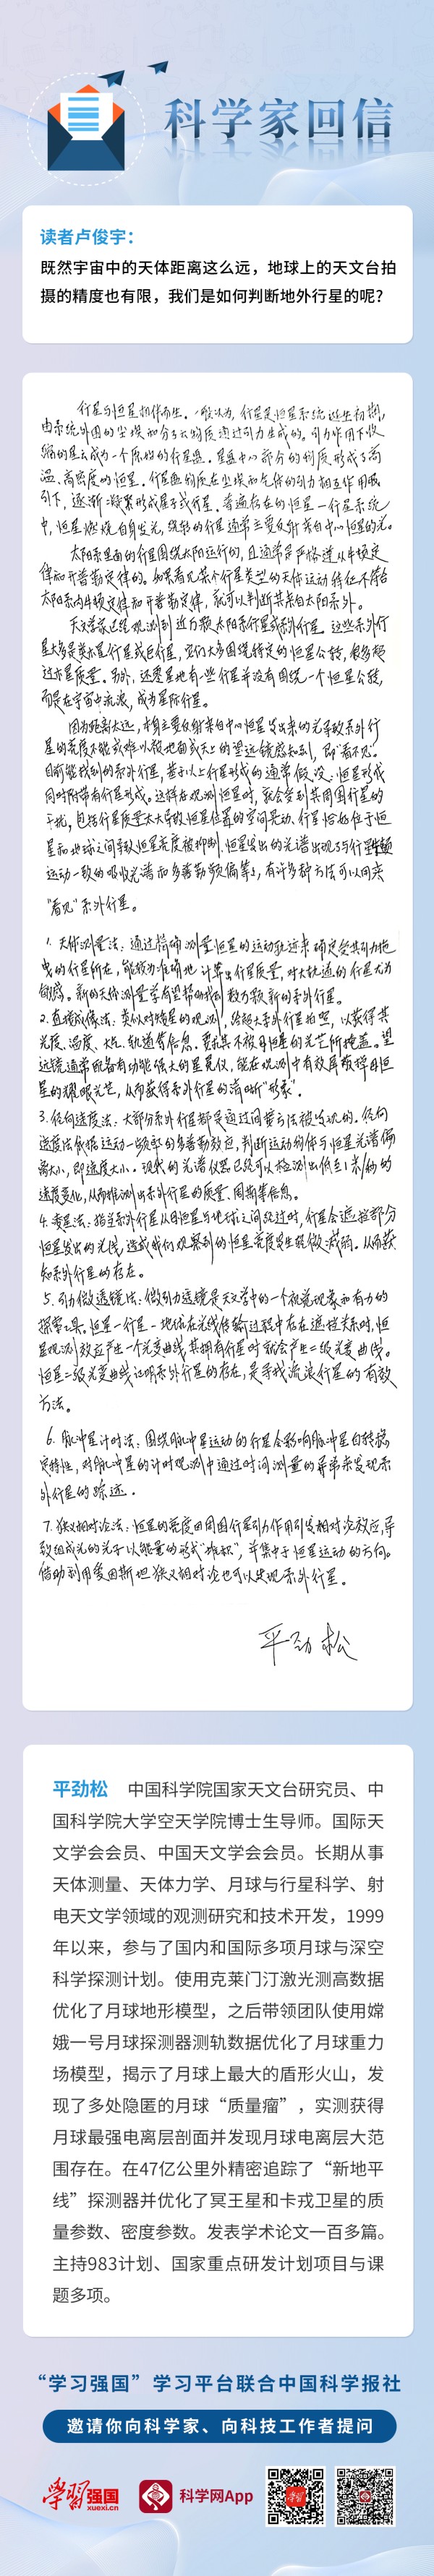 科学家回信
读者卢俊宇：
既然宇宙中的天体距离这么远，地球上的天文台拍
摄的精度也有限，我们是如何判断地外行星的呢？
行星与恒星相伴而生。一般认为，行星是恒星系统诞生初期，
由系统外围的尘埃和分子云物质通过引力生成的。引力作用下收
缩的星云成为一个原始的行星盘。星盘中心部分的物质形成了高
温、高密度的恒星。行星盘物质在尘埃和气体的引力相互作用吸
引下，逐渐凝聚形成原子式行星。普遍存在的恒星—行星系统
中，恒星燃烧自身发光，绕转的行星通常主要反射来自中心恒星的光。
太阳系里面的行星围绕太阳运行的，且通常严格遵从牛顿定
律和开普勒定律的。如果看见某个行星类型的天体运动特征不符合
太阳系内牛顿定律和开普勒定律，就可以判断其来自太阳系外。
天文学家已经观测到近万颗太阳系行星或系外行星。这些系外行
星大多是类木星行星或巨行星，它们大多围绕特定的恒星公转，很多超
过木星质量。另外，还零星地有一些行星并没有围绕一个恒星公转，
而是在宇宙中流浪，成为星际行星。
因为距离太远，本身主要反射来自中心恒星发出来的光导致系外行
星的亮度不能或难以被地面或天上的望远镜感知到，即“看不见”。
目前能找到的系外行星，基于以上行星形成的通常假设：恒星形成
同时附带有行星形成。这样在观测恒星时，就会受到其周围行星的
干扰，包括行星质量太大导致恒星位置的空间晃动、行星恰好位于恒
星和地球之间导致恒星亮度被抑制、恒星发出的光谱出现了与行星
运动一致的吸收光谱和多普勒频偏等，有许多种方法可以间接
“看见”系外行星。
1. 天体测量法：通过精确测量恒星的运动轨迹来确定受其引力拖
曳的行星所在，能较为准确地计算出行星质量，对大轨道的行星尤为
敏感。新的天体测量学有望帮助我们数万颗新的系外行星。
2. 直接成像法：类似对恒星的观测，给超大系外行星拍照，以获得其
光度、温度、大气、轨道等信息，要求其不被母恒星的光芒所掩盖。望
远镜通常配备有功能强大的星冕仪，能在观测中有效屏蔽掉母恒
星的耀眼光芒，从而获得系外行星的清晰“形象”。
3. 径向速度法：大部分系外行星都是通过间接方法被发现的。径向
速度法依据运动—频率的多普勒效应，判断运动物体与恒星光谱偏
离大小，即速度大小。现代的光谱仪器已经可以检测出低至1米/秒的
速度变化，从而推测出系外行星的质量、周期等信息。
4. 凌星法：指当系外行星从母恒星与地球之间经过时，行星会遮挡部分
恒星发出的光线，造成我们观察到的恒星亮度发生轻微减弱。从而获
知系外行星的存在。
5. 引力微透镜法：微引力透镜是天文学中的一个视觉现象和有力的
探索工具。恒星—行星—地球在光线传输过程中存在遮挡关系时，恒
星观测效应产生一个光变曲线，其拥有行星时就会产生二级光变曲线。
恒星二级光变曲线证明系外行星的存在，是寻找流浪行星的有效
方法。
6. 脉冲星计时法：围绕脉冲星运动的行星会影响脉冲星自转稳
定特性，对脉冲星的计时观测中通过时间测量的异常来发现系
外行星的踪迹。
7. 狭义相对论法：恒星的亮度由周围行星引力作用引发相对论效应，导
致组成光的光子以能量的形式“堆积”，并集中于恒星运动的方向。
借助利用爱因斯坦狭义相对论也可以发现系外行星。
平劲松
平劲松 中国科学院国家天文台研究员、中
国科学院大学空天学院博士生导师。国际天
文学会会员、中国天文学会会员。长期从事
天体测量、天体力学、月球与行星科学、射
电天文学领域的观测研究和技术开发，1999
年以来，参与了国内和国际多项月球与深空
科学探测计划。使用克莱门汀激光测高数据
优化了月球地形模型，之后带领团队使用嫦
娥一号月球探测器测轨数据优化了月球重力
场模型，揭示了月球上最大的盾形火山，发
现了多处隐匿的月球“质量瘤”，实测获得
月球最强电离层剖面并发现月球电离层大范
围存在。在47亿公里外精密追踪了“新地平
线”探测器并优化了冥王星和卡戎卫星的质
量参数、密度参数。发表学术论文一百多篇。
主持983计划、国家重点研发计划项目与课
题多项。
“学习强国”学习平台联合中国科学报社
邀请你向科学家、向科技工作者提问
学习强国
xuexi.cn
科学网App